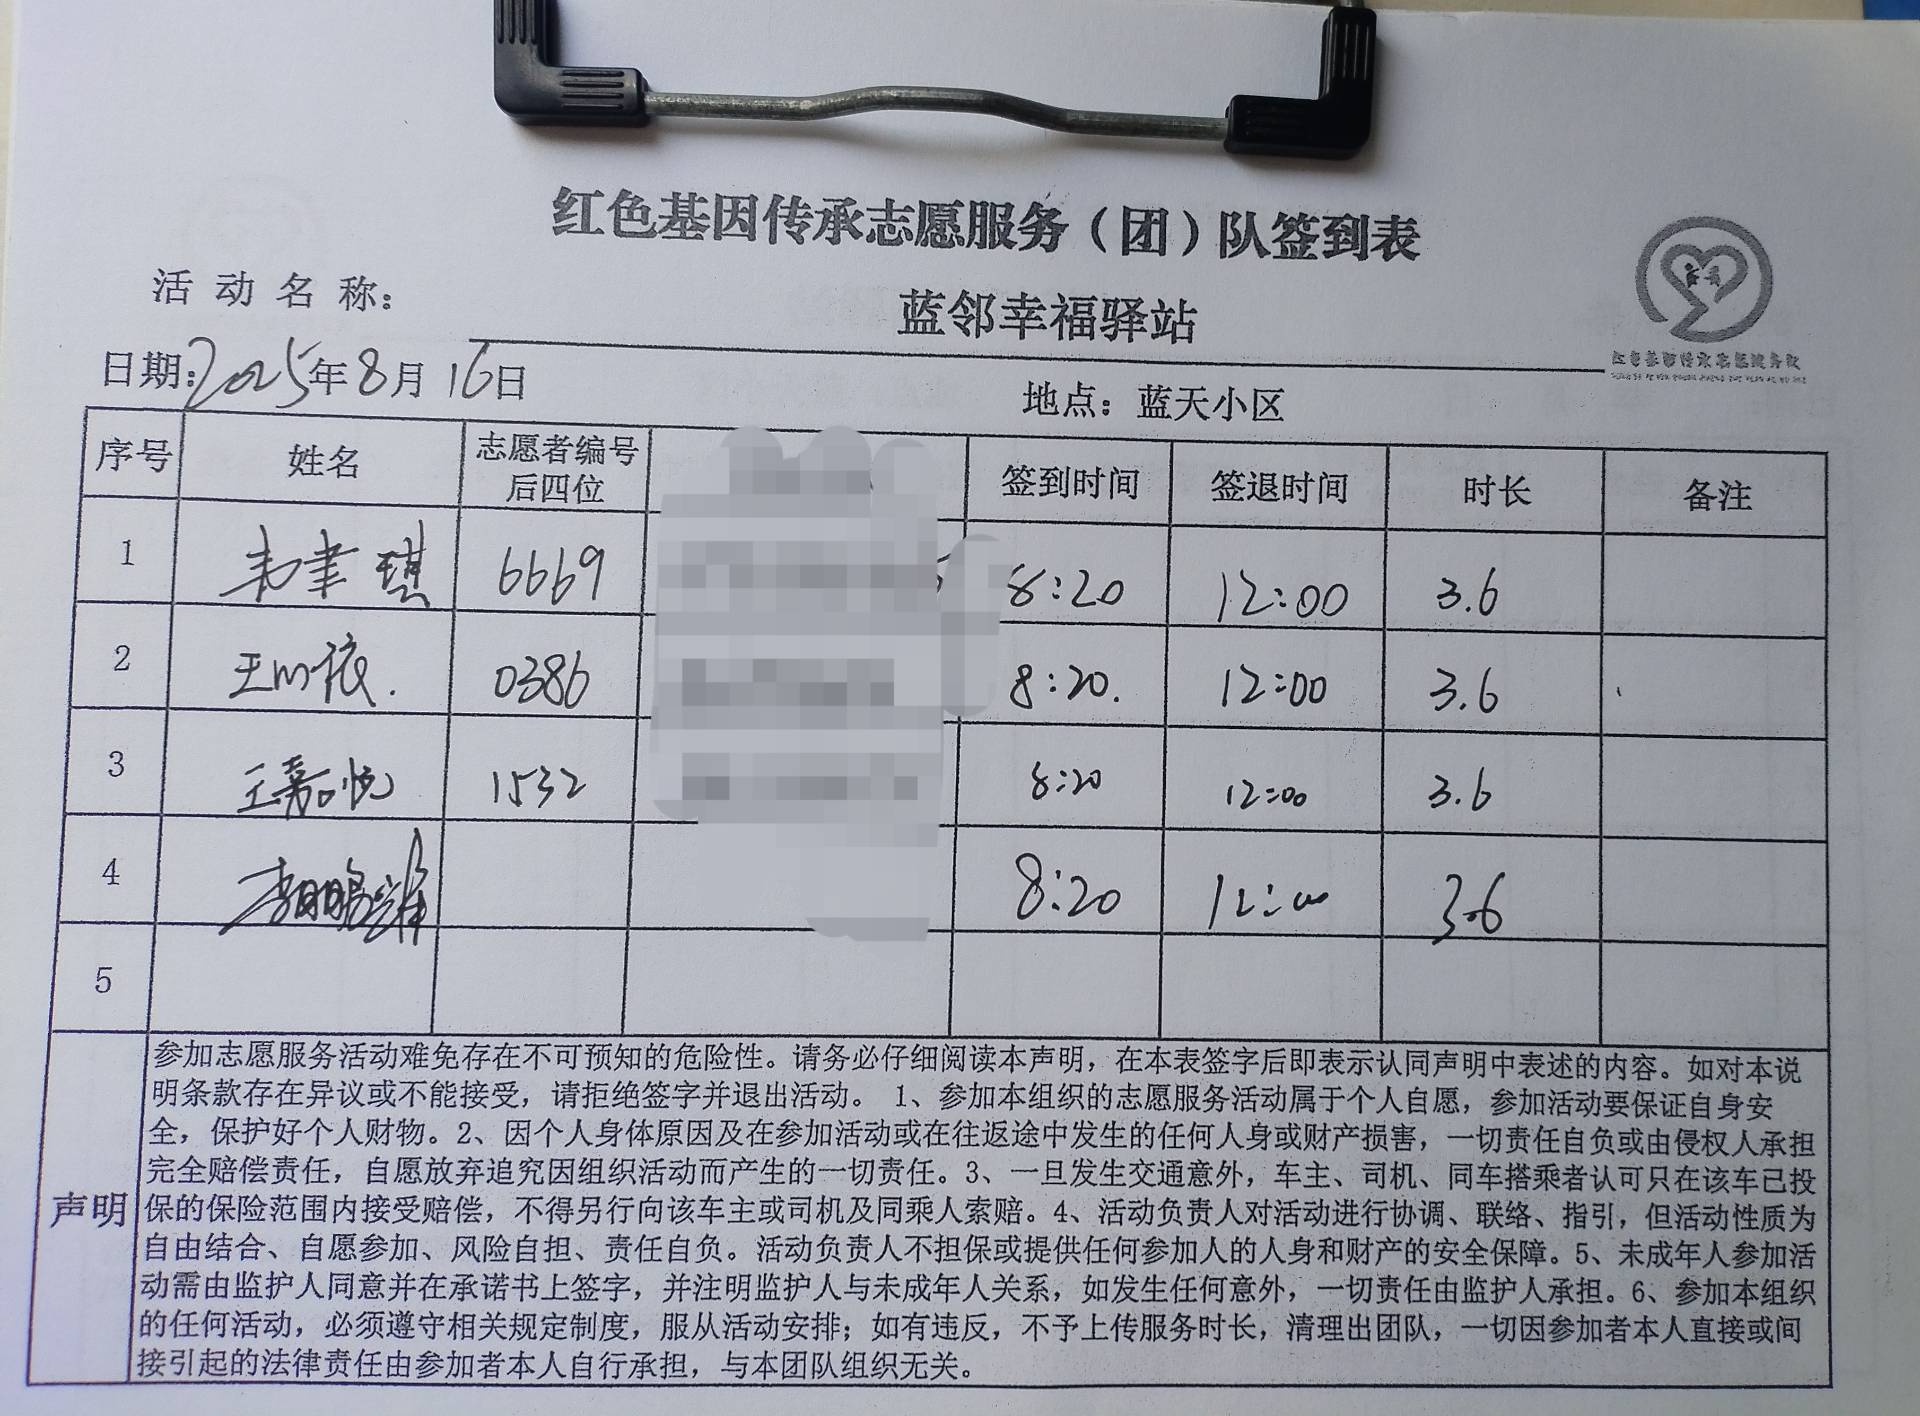 红色基因传承志愿服务（团）队签到表
活动名称：
蓝邻幸福驿站
日期：2025年8月16日
地点：蓝天小区
序号 姓名 志愿者编号后四位 签到时间 签退时间 时长 备注
1 6669 8:20 12:00 3.6
2 王 依. 0386 8:20. 12:00 3.6
3 王嘉悦 1532 8:20 12:00 3.6
4 李 8:20 12:00 3.6
5
声明
参加志愿服务活动难免存在不可预知的危险性。请务必仔细阅读本声明，在本表签字后即表示认同声明中表述的内容。如对本说
明条款存在异议或不能接受，请拒绝签字并退出活动。 1、参加本组织的志愿服务活动属于个人自愿，参加活动要保证自身安
全，保护好个人财物。2、因个人身体原因及在参加活动或在往返途中发生的任何人身或财产损害，一切责任自负或由侵权人承担
完全赔偿责任，自愿放弃追究因组织活动而产生的一切责任。3、一旦发生交通意外，车主、司机、同车搭乘者认可只在该车已投
保的保险范围内接受赔偿，不得另行向该车主或司机及同乘人索赔。4、活动负责人对活动进行协调、联络、指引，但活动性质为
自由结合、自愿参加、风险自担、责任自负。活动负责人不担保或提供任何参加人的人身和财产的安全保障。5、未成年人参加活
动需由监护人同意并在承诺书上签字，并注明监护人与未成年人关系，如发生任何意外，一切责任由监护人承担。6、参加本组织
的任何活动，必须遵守相关规定制度，服从活动安排；如有违反，不予上传服务时长，清理出团队，一切因参加者本人直接或间
接引起的法律责任由参加者本人自行承担，与本团队组织无关。